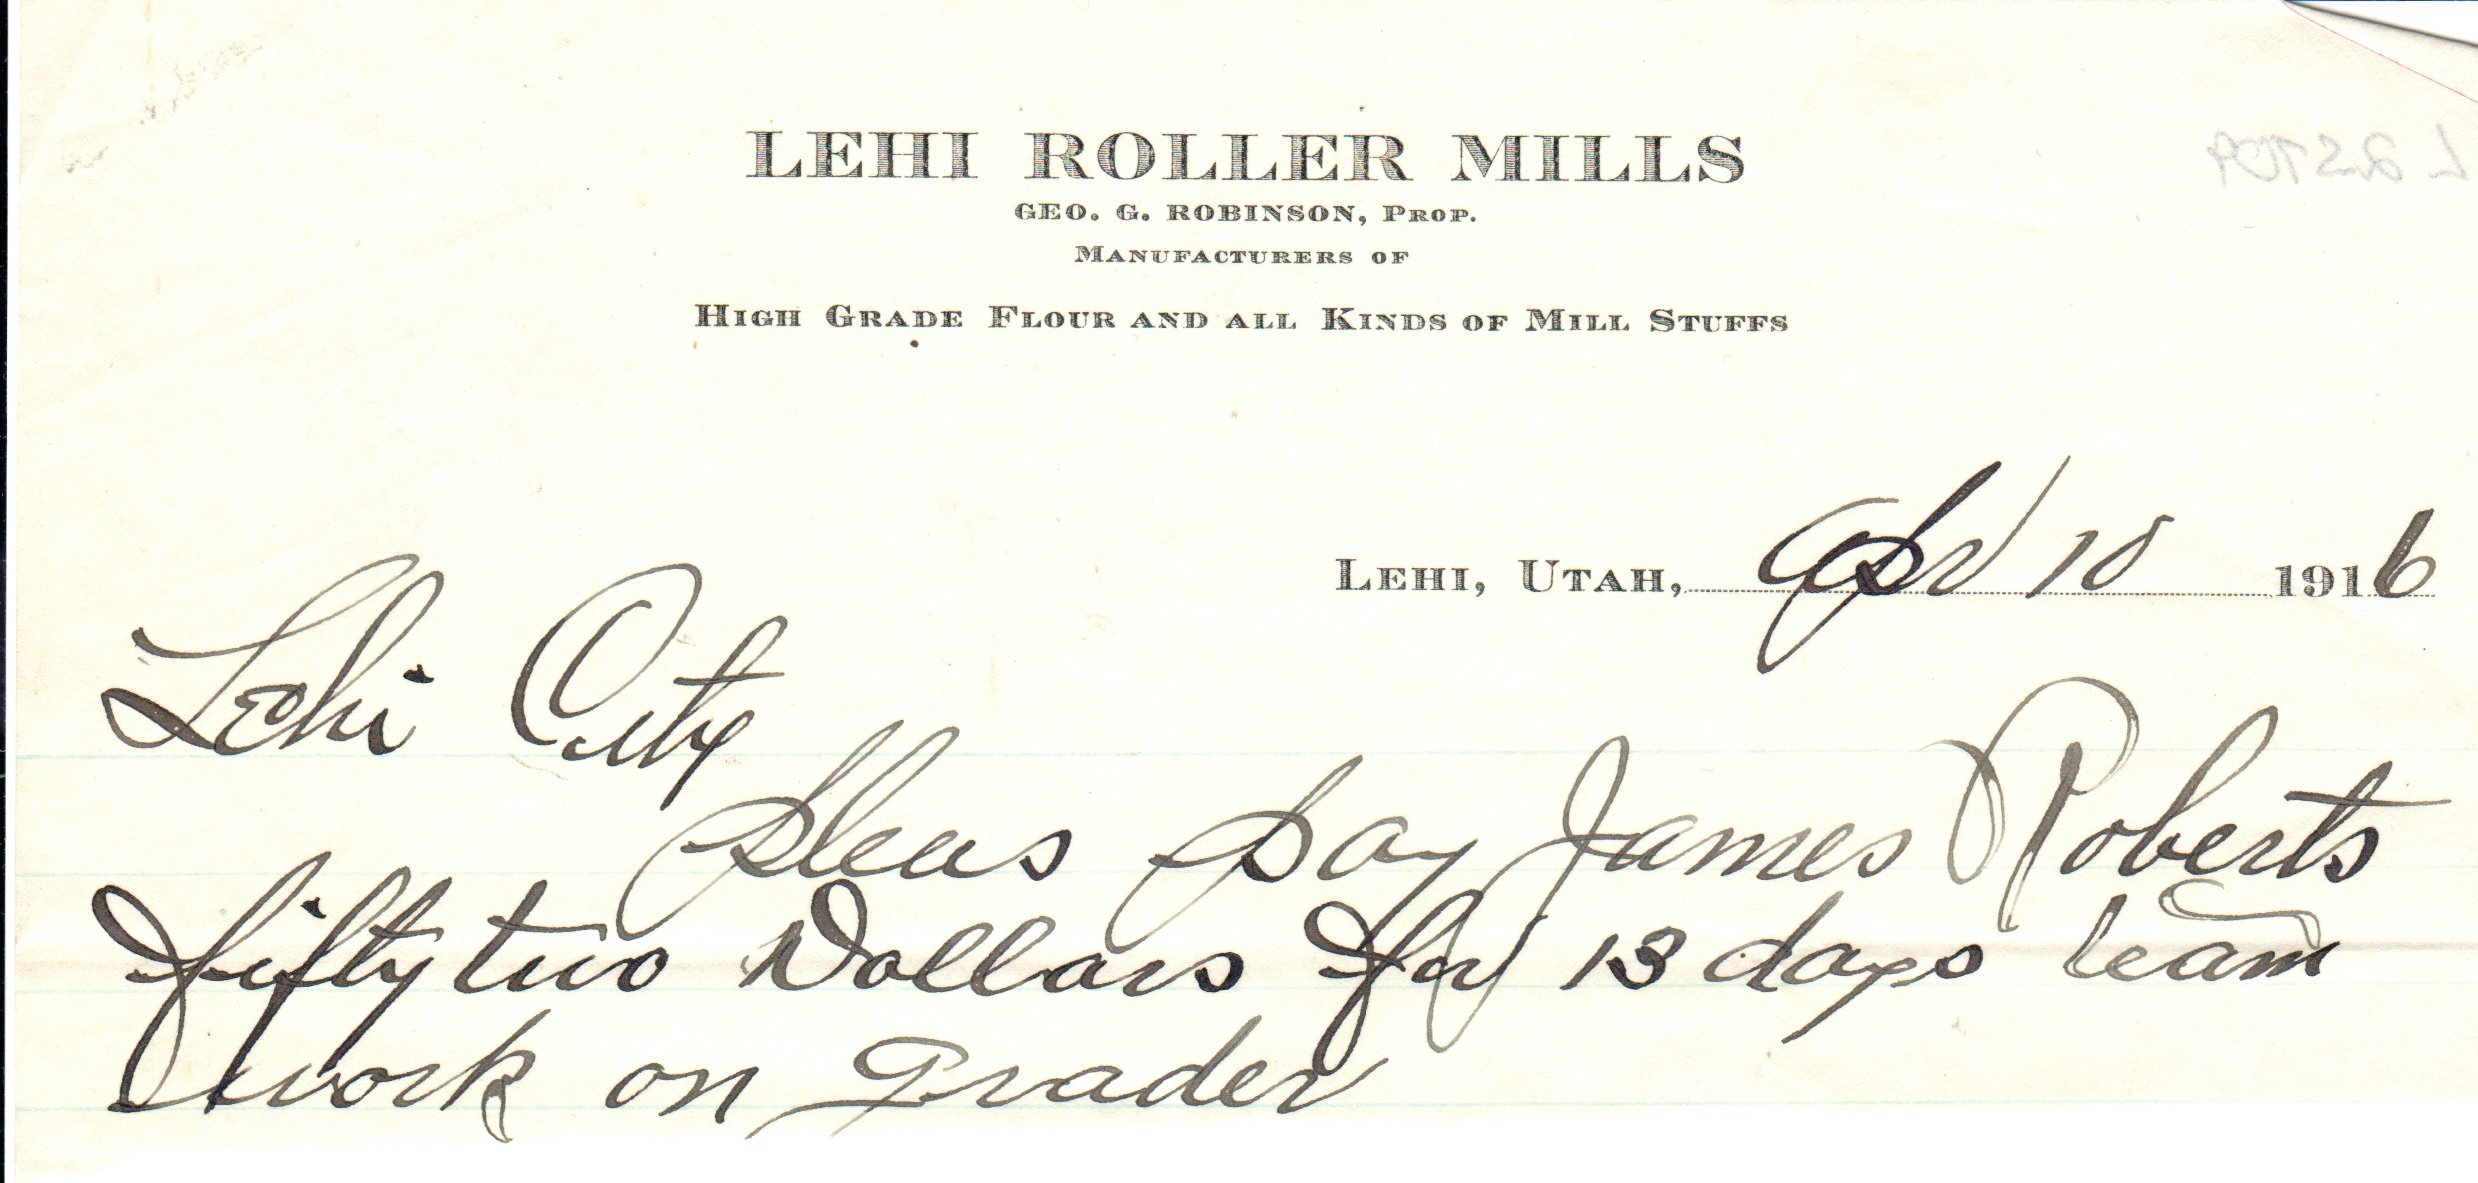 LEHI ROLLER MILLS
GEO. G. ROBINSON, PROP.
MANUFACTURERS OF
HIGH GRADE FLOUR AND ALL KINDS OF MILL STUFFS
LEHI, UTAH, Apr 10 1916
Lehi City
Pleas Pay James Roberts
fifty two Dollars for 13 days team
work on Grader